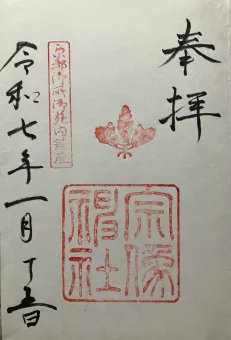 奉拝
宗像神社
京都御所御苑内鎮座
令和七年一月十五日